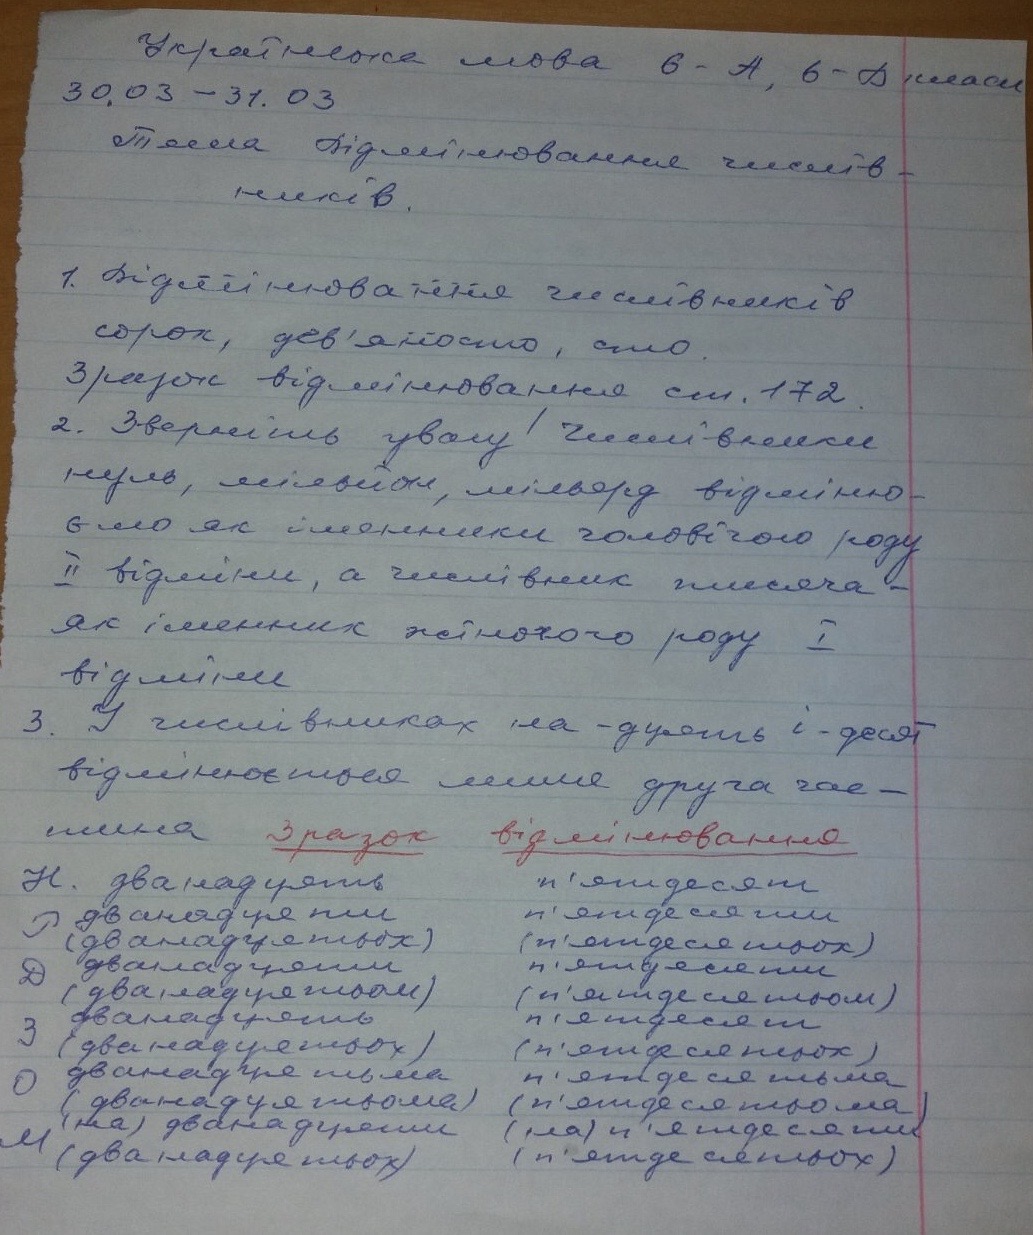 Українська мова 6-А, 6-Б класи
30.03 – 31.03
Тема Відмінювання числів-
ників.
1. Відмінювання числівників
сорок, дев'яносто, сто.
Зразок відмінювання ст. 172.
2. Зверніть увагу! Числівники
нуль, мільйон, мільярд відміню-
ємо як іменники чоловічого роду
ІІ відміни, а числівник тисяча –
як іменник жіночого роду І
відміни
3. У числівниках на -дцять і -десят
відмінюється лише друга час-
тина Зразок відмінювання
Н. дванадцять п'ятдесят
Р дванадцяти п'ятдесяти
(дванадцятьох) (п'ятдесятьох)
Д дванадцяти п'ятдесяти
(дванадцятьом) (п'ятдесятьом)
З дванадцять п'ятдесят
(дванадцятьох) (п'ятдесятьох)
О дванадцятьма п'ятдесятьма
(дванадцятьома) (п'ятдесятьома)
М (на) дванадцяти (на) п'ятдесяти
(дванадцятьох) (п'ятдесятьох)